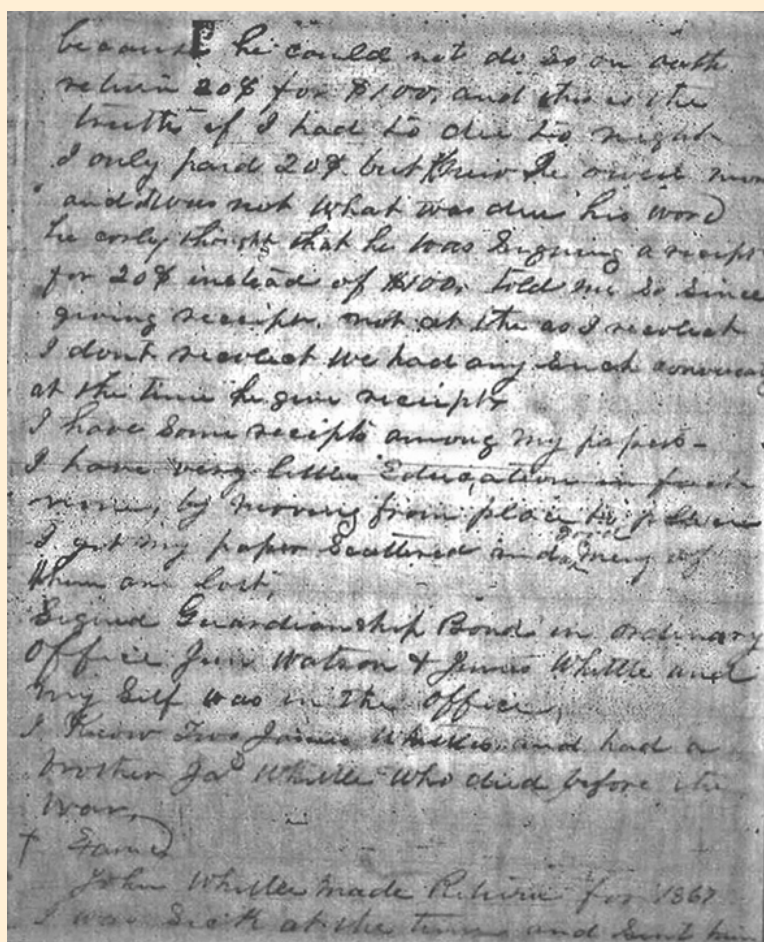 because he could not do so on oath
return 20$ for $100, and this is the
truth if I had to die to night
I only paid 20$ but knew he owed more
and was not what was due his word
he only thought that he was signing a receipt
for 20$ instead of $100, told me so since
giving receipt, not at the as I recolect
I dont recolect we had any such
at the time he give receipts
I have some recipts among my papers-
I have very little Education in fact
none, by moving from place to place
I got my paper scattered and many of
them are lost,
Signed Guardianship Bond in ordinary
Office Jim Watson & James Whittle and
my self was in the office,
I Know Two James Whittles, and had a
brother Jas Whittle who died before the
war,
+
John Whittle made Return for 1867
I was sick at the time and sent him